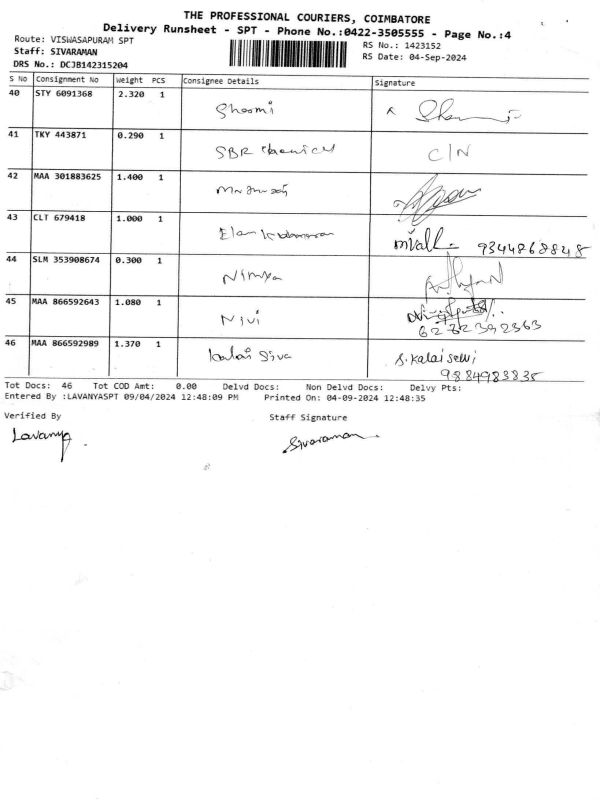 THE PROFESSIONAL COURIERS, COIMBATORE
Delivery Runsheet - SPT - Phone No.:0422-3505555 - Page No.:4
Route: VISWASAPURAM SPT
Staff: SIVARAMAN
DRS No.: DCJB142315204
RS No.: 1423152
RS Date: 04-Sep-2024
S No Consignment No Weight PCS Consignee Details Signature
40 STY 6091368 2.320 1
41 TKY 443871 0.290 1 SBR chemicals C/N
42 MAA 301883625 1.400 1
43 CLT 679418 1.000 1 9344868848
44 SLM 353908674 0.300 1
45 MAA 866592643 1.080 1 Nivi
46 MAA 866592989 1.370 1 kalai Siva S.Kalaiselvi
9884983835
Tot Docs: 46 Tot COD Amt: 0.00 Delvd Docs: Non Delvd Docs: Delvy Pts:
Entered By :LAVANYASPT 09/04/2024 12:48:09 PM Printed On: 04-09-2024 12:48:35
Verified By Staff Signature
Lavanya Sivaraman